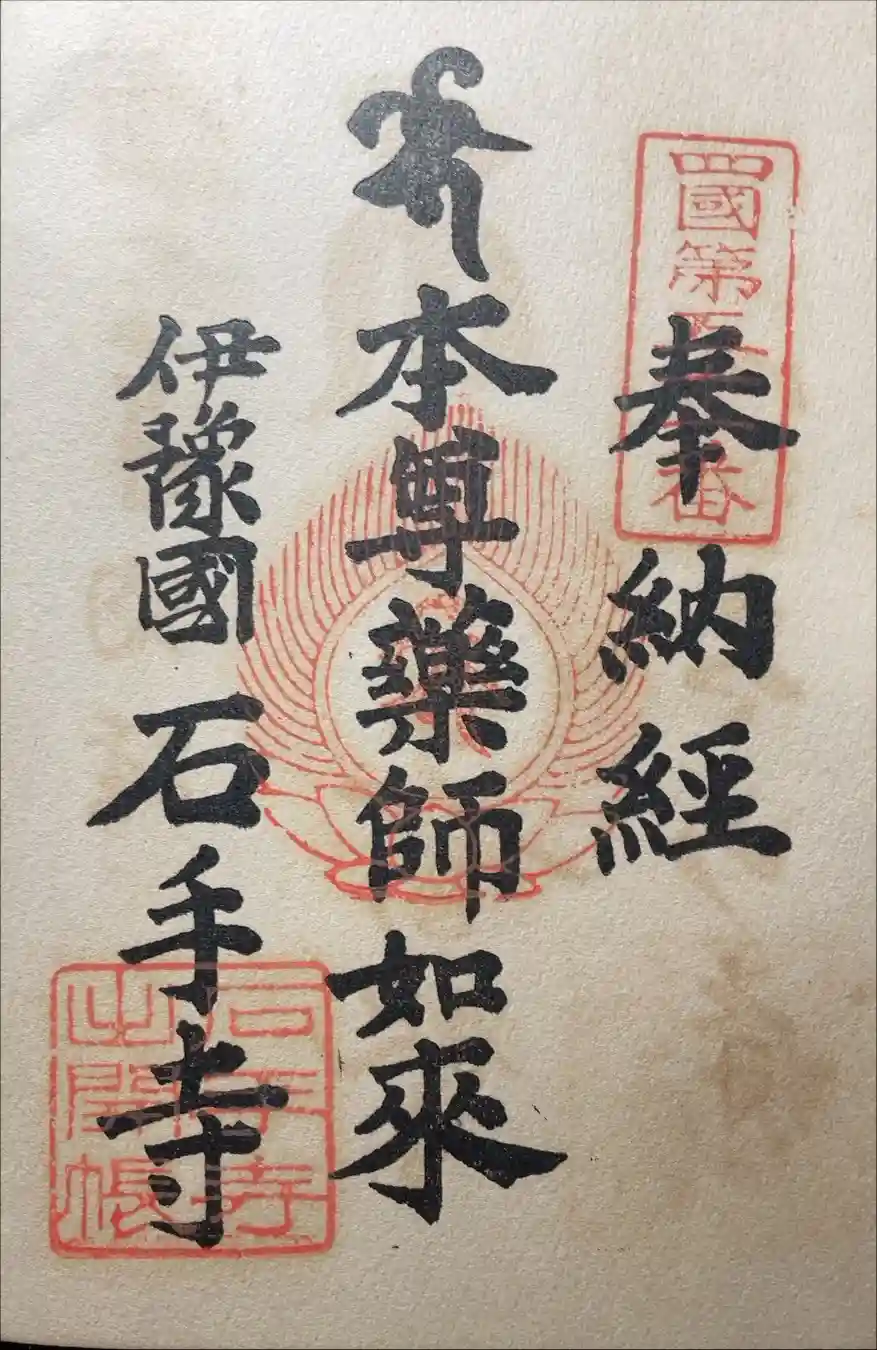 四國第五十一番
奉納經
本尊藥師如來
伊豫國 石手寺
石手寺
出開帳